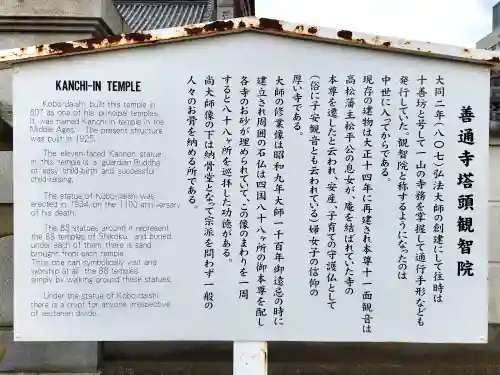 KANCHI-IN TEMPLE
Kobo-daishi built this temple in
807 as one of his principal temples.
It was named Kanchi-in temple in the
Middle Ages. The present structure
was built in 1925.
The eleven-faced Kannon statue
in this temple is a guardian Buddha
of easy child-birth and successful
child-raising.
The statue of Kobo-daishi was
erected in 1934, on the 1100 anniversary
of his death.
The 88 statues around it represent
the 88 temples of Shikoku, and buried
under each of them there is sand
brought from each temple.
Thus one can symbolically visit and
worship at all the 88 temples
simply by walking around these statues.
Under the statue of Kobo-daishi
there is a crypt for anyone irrespective
of sectarian divide.
善通寺塔頭観智院
大同二年（八〇七）弘法大師の創建にして往時は
十善坊と号して一山の寺務を掌握して通行手形なども
発行していた。観智院と称するようになったのは
中世に入ってからである。
現存の建物は大正十四年に再建され本尊十一面観音は
高松藩主松平公の息女が、庵を結ばれていた寺の
本尊を遷したと云われ、安産、子育ての守護仏として
（俗に子安観音とも云われている）婦女子の信仰の
厚い寺である。
大師の修業像は昭和九年大師一千百年御遠忌の時に
建立され周囲の石仏は四国八十八ヶ所の御本尊を配し
各寺のお砂が埋められていて、この像のまわりを一周
すると八十八ヶ所を巡拝した功徳がある。
尚大師像の下は納骨堂となって宗派を問わず一般の
人々のお骨を納める所である。